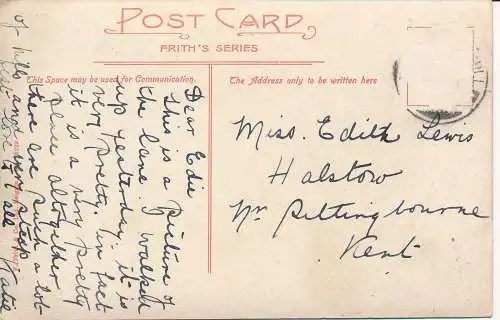 POST CARD
FRITH'S SERIES
This Space may be used for Communication.
The Address only to be written here
Dear Edie
this is a picture of
the lane I walked
up yesterday it is
very pretty. In fact
it is a very pretty
place altogether
there are such a lot
of hills and very steep
love to all Katie
Miss. Edith Lewis
Halstow
Nr Sittingbourne
Kent